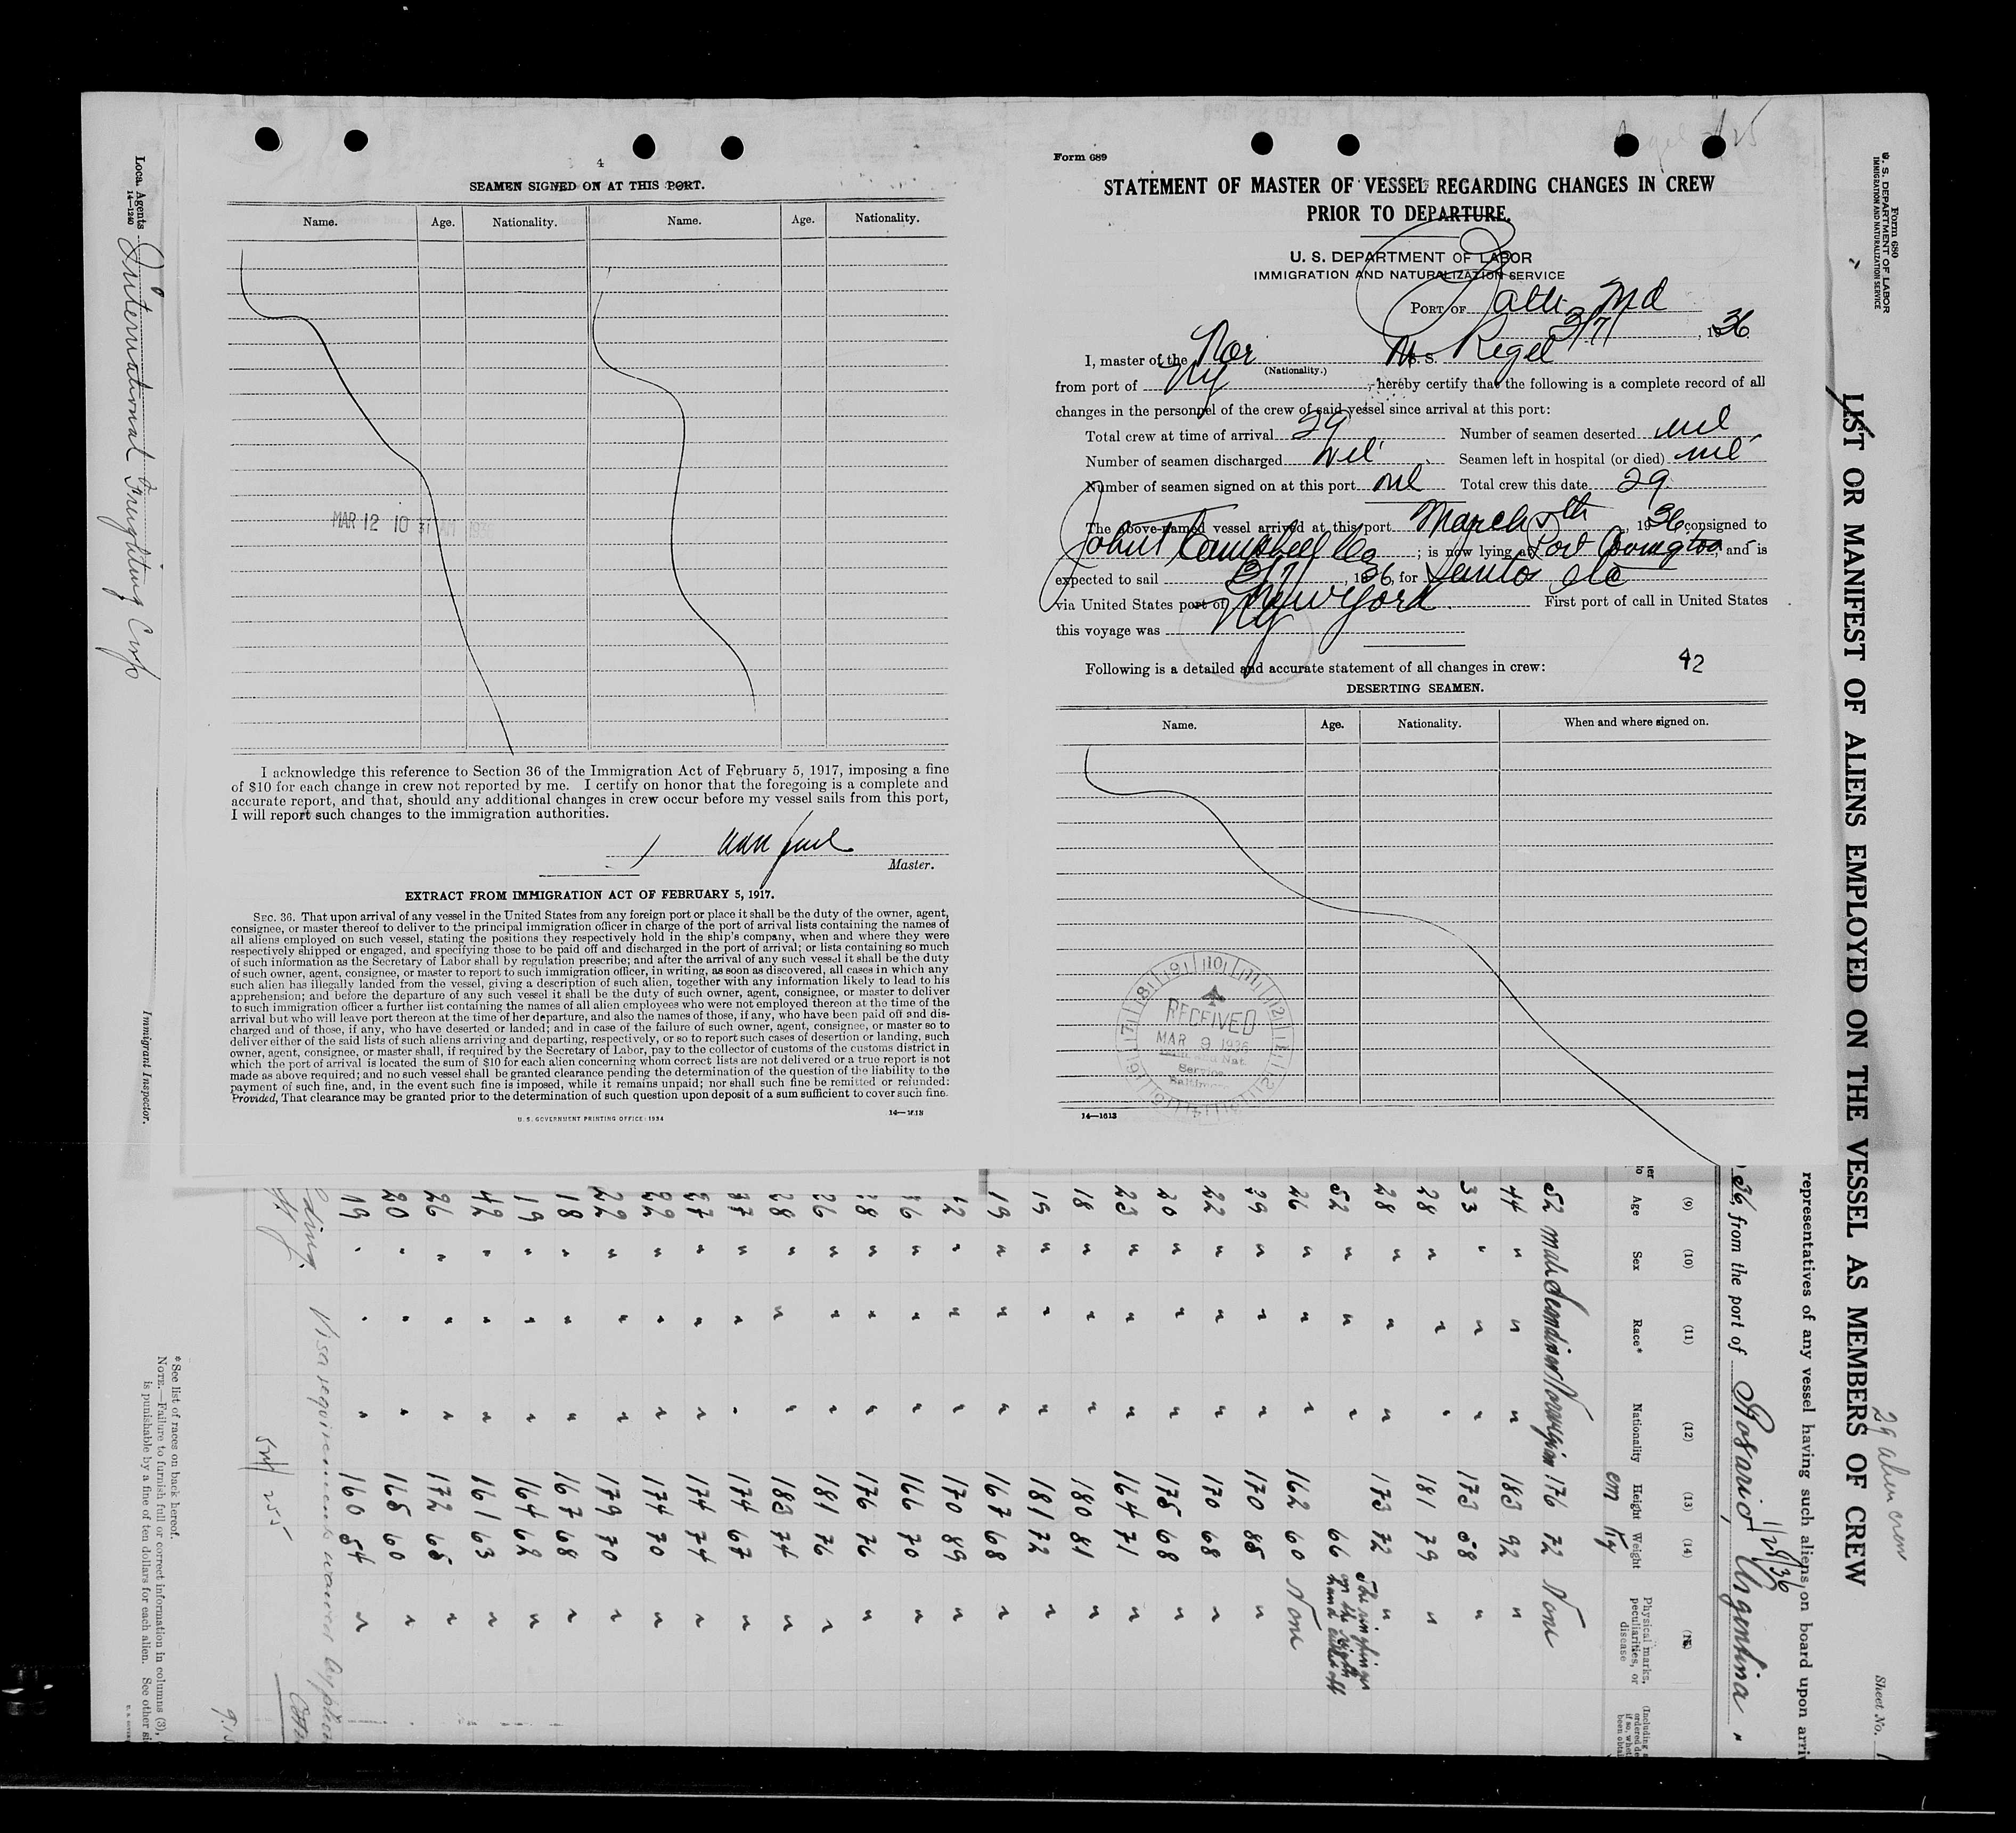 4
SEAMEN SIGNED ON AT THIS PORT.
Name. Age. Nationality. Name. Age. Nationality.
MAR 12 10 31 AM 1936
I acknowledge this reference to Section 36 of the Immigration Act of February 5, 1917, imposing a fine
of $10 for each change in crew not reported by me. I certify on honor that the foregoing is a complete and
accurate report, and that, should any additional changes in crew occur before my vessel sails from this port,
I will report such changes to the immigration authorities.
Master.
EXTRACT FROM IMMIGRATION ACT OF FEBRUARY 5, 1917.
SEC. 36. That upon arrival of any vessel in the United States from any foreign port or place it shall be the duty of the owner, agent,
consignee, or master thereof to deliver to the principal immigration officer in charge of the port of arrival lists containing the names of
all aliens employed on such vessel, stating the positions they respectively hold in the ship's company, when and where they were
respectively shipped or engaged, and specifying those to be paid off and discharged in the port of arrival; or lists containing so much
of such information as the Secretary of Labor shall by regulation prescribe; and after the arrival of any such vessel it shall be the duty
of such owner, agent, consignee, or master to report to such immigration officer, in writing, as soon as discovered, all cases in which any
such alien has illegally landed from the vessel, giving a description of such alien, together with any information likely to lead to his
apprehension; and before the departure of any such vessel it shall be the duty of such owner, agent, consignee, or master to deliver
to such immigration officer a further list containing the names of all alien employees who were not employed thereon at the time of the
arrival but who will leave port thereon at the time of her departure, and also the names of those, if any, who have been paid off and dis-
charged and of those, if any, who have deserted or landed; and in case of the failure of such owner, agent, consignee, or master so to
deliver either of the said lists of such aliens arriving and departing, respectively, or so to report such cases of desertion or landing, such
owner, agent, consignee, or master shall, if required by the Secretary of Labor, pay to the collector of customs of the customs district in
which the port of arrival is located the sum of $10 for each alien concerning whom correct lists are not delivered or a true report is not
made as above required; and no such vessel shall be granted clearance pending the determination of the question of the liability to the
payment of such fine, and, in the event such fine is imposed, while it remains unpaid; nor shall such fine be remitted or refunded:
Provided, That clearance may be granted prior to the determination of such question upon deposit of a sum sufficient to cover such fine.
U. S. GOVERNMENT PRINTING OFFICE: 1934
14—1613
Form 689
STATEMENT OF MASTER OF VESSEL REGARDING CHANGES IN CREW
PRIOR TO DEPARTURE.
U. S. DEPARTMENT OF LABOR
IMMIGRATION AND NATURALIZATION SERVICE
PORT OF Balto Md
3/7, 1936.
I, master of the Nor M. S. Regel
(Nationality.)
from port of Ny, hereby certify that the following is a complete record of all
changes in the personnel of the crew of said vessel since arrival at this port:
Total crew at time of arrival 29 Number of seamen deserted nil
Number of seamen discharged nil Seamen left in hospital (or died) nil
Number of seamen signed on at this port nil Total crew this date 29
The above-named vessel arrived at this port March 7th, 1936 consigned to
John T Campbell Co; is now lying at Port Covington, and is
expected to sail 3/7, 1936, for Santos etc
via United States port of New York. First port of call in United States
this voyage was Ny
Following is a detailed and accurate statement of all changes in crew: 42
DESERTING SEAMEN.
Name. Age. Nationality. When and where signed on.
RECEIVED
MAR 9 1936
Service
Baltimore
14—1613
Form 680
U. S. DEPARTMENT OF LABOR
IMMIGRATION AND NATURALIZATION SERVICE
LIST OR MANIFEST OF ALIENS EMPLOYED ON THE VESSEL AS MEMBERS OF CREW
29 alien crew
Sheet No. 1
representatives of any vessel having such aliens on board upon arri
36, from the port of Rosario, Argentina
1/28/36
(9) (10) (11) (12) (13) (14) (15)
Age Sex Race* Nationality Height Weight Physical marks, peculiarities, or disease
cm Kg
52 male Scandinav Norwegian 176 72 None
44 " " " 183 92 "
33 " " " 173 58 "
28 " " " 181 79 "
28 " " " 173 72 "
52 " " " 66
26 " " " 162 60 None
29 " " " 170 85 "
22 " " " 170 68 "
20 " " " 175 68 "
23 " " " 164 71 "
18 " " " 180 81 "
19 " " " 181 72 "
19 " " " 167 68 "
42 " " " 170 89 "
36 " " " 166 70 "
28 " " " 176 76 "
26 " " " 181 76 "
28 " " " 183 74 "
37 " " " 174 67 "
27 " " " 174 74 "
22 " " " 174 70 "
22 " " " 179 70 "
18 " " " 167 68 "
19 " " " 164 62 "
42 " " " 161 63 "
26 " " " 172 65 "
20 " " " 165 60 "
19 " " " 160 54 "
Visa requirements waived
*See list of races on back hereof.
NOTE.—Failure to furnish full or correct information in columns (3),
is punishable by a fine of ten dollars for each alien. See other si
Local Agents International Freighting Corp
14—1240
Immigrant Inspector.